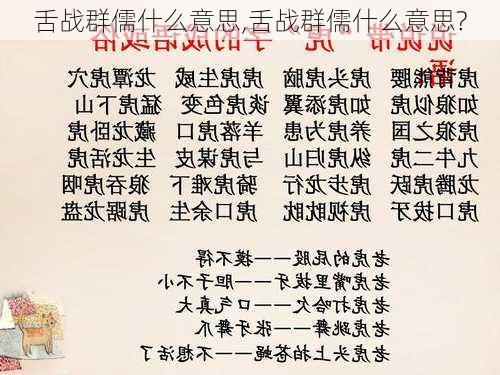 舌战群儒什么意思,舌战群儒什么意思?
说说带“虎”字的成语或俗
语
虎背熊腰 虎头虎脑 虎虎生威 龙潭虎穴
如狼似虎 如虎添翼 谈虎色变 猛虎下山
虎狼之国 养虎为患 羊落虎口 藏龙卧虎
九牛二虎 纵虎归山 与虎谋皮 生龙活虎
龙腾虎跃 虎步龙行 骑虎难下 狼吞虎咽
虎口拔牙 虎视眈眈 虎口余生 虎踞龙盘
老虎的屁股———摸不得
老虎嘴里拔牙———胆子不小
老虎打哈欠———口气真大
老虎跳舞———张牙舞爪
老虎头上拍苍蝇———不想活了